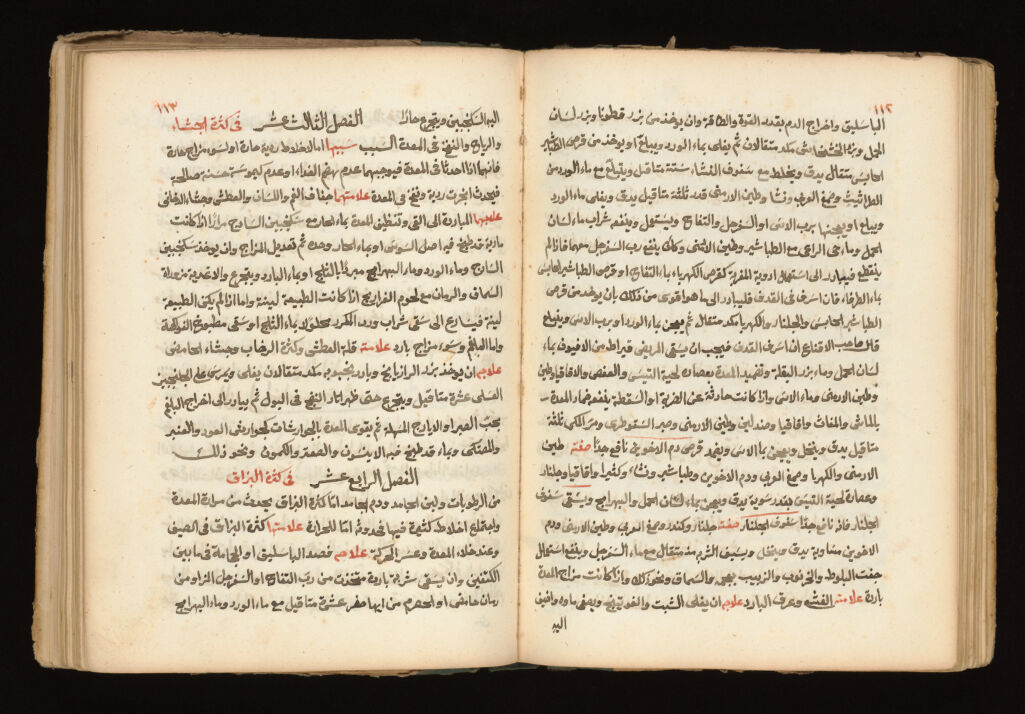 ١١٢
الباسليق واخراج الدم بقدر القوة والطاقة وان يوخذ من بزر قطونا وبزر لسان
الحمل وبزر الخشخاش مكد متقالان ثم يغلى بماء الورد ويباع او يوخذ من قرص الطباشير
الحابس متقال يدق ويخلط مع سفوف النشاء ستة متاقيل ويبلع مع ماء الورد من
وصمغ العربى ونشا وطين الارمنى قدر ثلثة متاقيل يدق ويغلى بماء الورد
ويباع او يعجنها برب الاس او السفرجل والتفاح ويستعمل وينفعه شراب ماء لسان
الحمل وماء عصى الراعى مع الطباشير وطين الارمنى وكذلك ينفع رب السفرجل معها فاذا لم
ينقطع فيبادر الى استعمال ادوية المغرية كقرص الكهرباء بماء التفاح او قرص الطباشير الحابس
بماء الطرفاء فان اسرف فى القذف فليبادر الى ما هو اقوى من ذلك بان يوخذ من قرص
الطباشير الحابس والجلنار والكهربا مكد متقال ثم يعجن بماء الورد او برب الاس ويبلع
قال صاحب الاقناع ان اسرف القذف فيجب ان يسقى المريض قيراط من الافيون بماء
لسان الحمل وماء بزر البقلة وتضميد المعدة بعصارة لحية التيس والعفص والاقاقيا وطين
وطين الارمنى وماء الاس واذا كانت حادثة عن الضربة او السقطة ينفعه ضماد المعدة
بالماش والمغاث واقاقيا وصندلين وطين الارمنى وصبر السقوطرى ومر الكل ثلثة
متاقيل يدق وينخل ويعجن بماء الاس ويضمد قرص دم الاخوين نافع جدا صفته طين
الارمنى والكهربا وصمغ العربى ودم الاخوين وطباشير ونشاء وكثيرا واقاقيا وجلنار
وعصارة لحية التيس بقدر سوية يدق ويعجن بماء لسان الحمل والبهرامج ويسقى سفوف
الجلنار فانه نافع جدا سفوف الجلنار صفته جلنار وكندر وصمغ العربى وطين الارمنى ودم
الاخوين متساوية يدق وينخل ويسقى الدرهم منه متقال مع ماء السفرجل وينفع استعمال
جفت البلوط والخرنوب والزبيب بعجمه والسماق ونحو ذلك واذا كانت مزاج المعدة
باردة علامته الغشى وعرق البارد علاجه ان يغلى الشبت والفوتنج ويصفى ماؤه واضف
اليه
١١٣
اليه السكنجبين ويتجرع حارا الفصل الثالث عشر فى كثرة الجشاء
والرياح والنفخ فى المعدة السبب سببها اما الاخلاط ردية حارة او لسوء مزاج حارة
فانهما اذا احدثا فى المعدة فيوجبهما عدم نهضم الغذاء او عدم كيموسة حسنة صالحة
فيحدث ابخرت ردية ونفخ فى المعدة علامتهما جفاف الفم واللسان والعطش وجشاء الدخانى
علاجها المبادرة الى القى وتنظيف المعدة بماء الحار مع سكنجبين السادج مرارا اذا كانت
مادية قد طبخ فيه اصل السوس او بماء الحار وحده ثم تعديل المزاج وان يوخذ سكنجبين
السادج وماء الورد وماء البهرامج مبردا بالثلج او بماء البارد ويتجرع والاغذية مزعدلة
السماق والرمان مع لحوم الفراريج اذا كانت الطبيعة لينة واما اذا لم يكن الطبيعة
لينة فيسارع الى سقى شراب ورد المكرر محلولا بماء الثلج او سقى مطبوخ الفواكهة
واما البلغم وسوء مزاج بارد علامته قلة العطش وكثرة الرضاب وجشاء الحامض
علاجه ان يوخذ بزر الرازيانج وبادرنجبويه مكد متقالان يغلى ويمرس على الجلنجبين
العسلى عشرة متاقيل ويتجرع حتى ظهر اثار النضج فى البول ثم يبادر الى اخراج البلغم
بحب الصبر او الايارج المسهلة ثم يقوى المعدة بالجوارشات كجوارش العود والعنبر
والمصتكى وبماء قد طبخ فيه الانيسون والصعتر والكمون ونحو ذلك
الفصل الرابع عشر فى كثرة البزاق
من الرطوبات ولبن الجامد ودم الجامد اما كثرة البزاق يحدث من حرارة المعدة
واجتماع اخلاط كثيرة فيها فى حدوثه اما للحرارة علامتها كثرة البزاق فى الصيف
وعند خلاء المعدة وعسر الحركة علاجه فصد الباسليق او الحجامة فى ما بين
الكتفين وان يسقى شربة باردة متخذت من رب التفاح او السفرجل المزاو من
رمان حامض او الحصرم من ايها حضر عشرة متاقيل مع ماء الورد وماء البهرامج